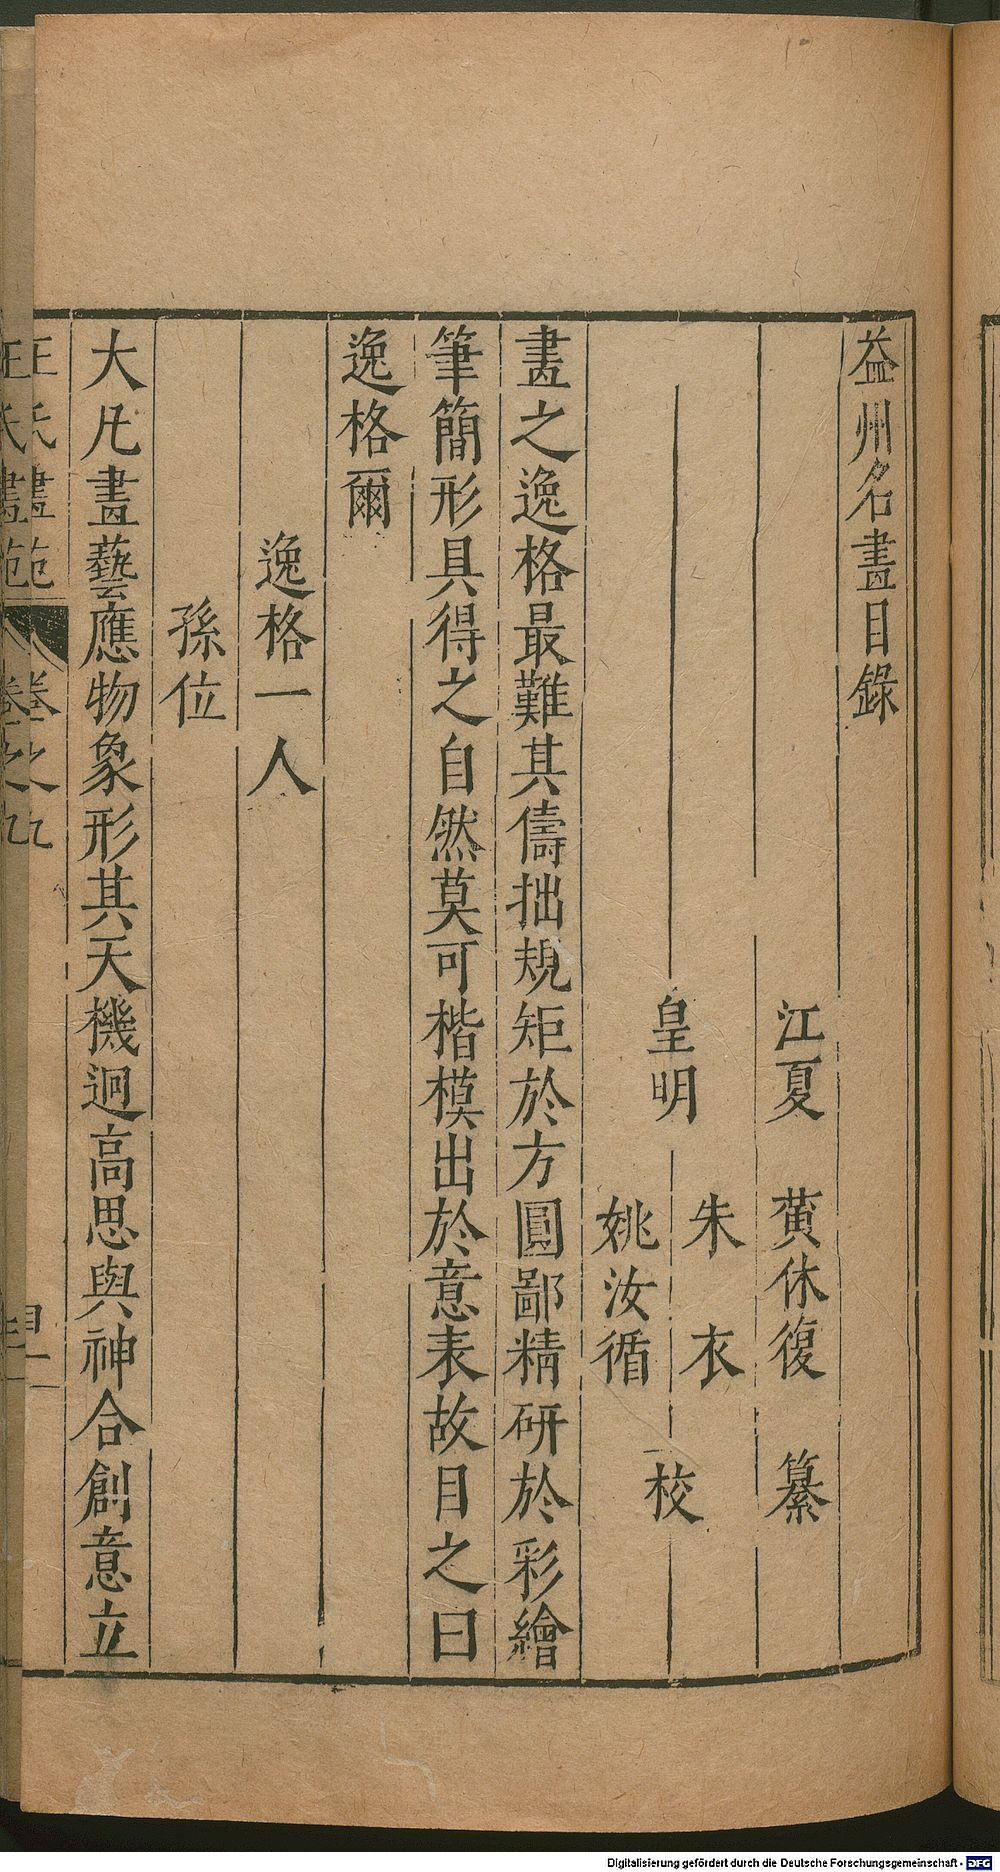 益州名畫目錄
江夏 黄休復 纂
皇明 朱衣 校
姚汝循
畫之逸格最難其儔拙規矩於方圓鄙精研於彩繪
筆簡形具得之自然莫可楷模出於意表故目之曰
逸格爾
逸格一人
孫位
大凡畫藝應物象形其天機迥高思與神合創意立
王氏畫苑 卷之九
Digitalisierung gefördert durch die Deutsche Forschungsgemeinschaft - DFG